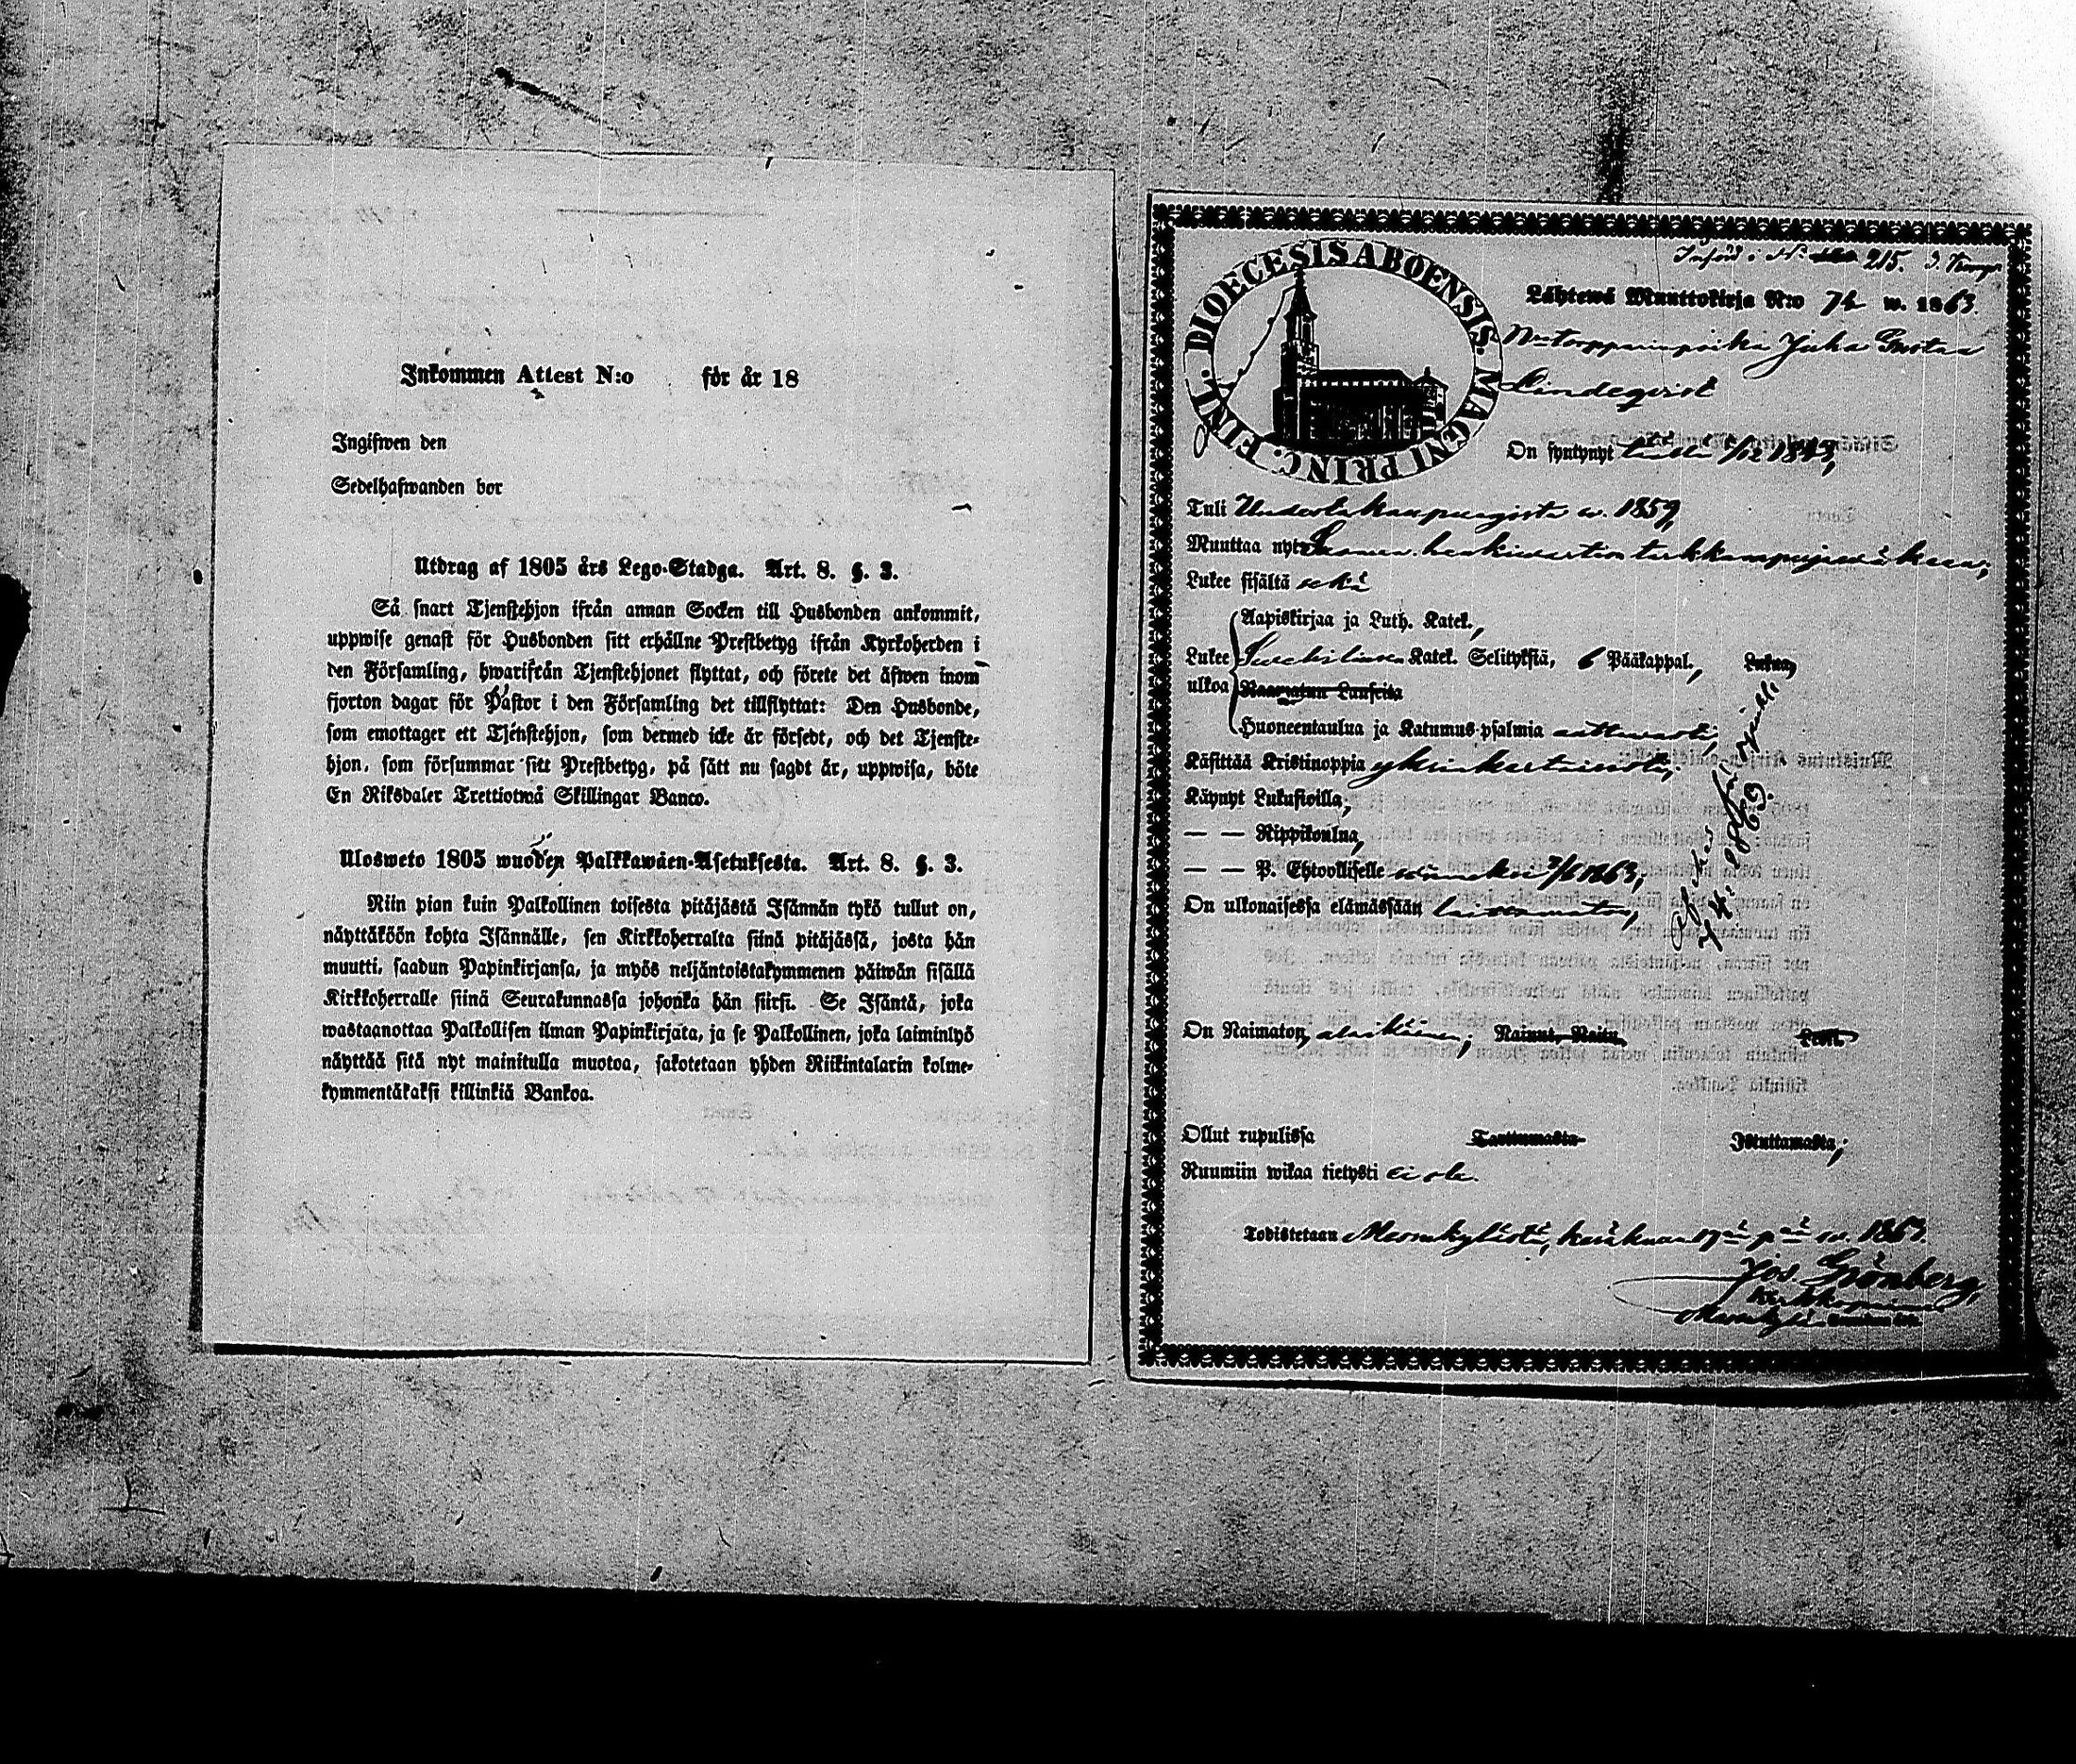 Inkommen Attest N:o för år 18
Ingifwen den
Sedelhafwanden bor
Utdrag af 1805 års Lego-Stadga. Art. 8. §. 3.
Så snart Tjenstehjon ifrån annan Socken till Husbonden ankommit,
uppwise genast för Husbonden sitt erhållne Prestbetyg ifrån Kyrkoherden i
den Församling, hwarifrån Tjenstehjonet flyttat, och förete det äfwen inom
fjorton dagar för Pastor i den Församling det tillflyttat: Den Husbonde,
som emottager ett Tjenstehjon, som dermed icke är försedt, och det Tjenste-
hjon, som försummar sitt Prestbetyg, på sätt nu sagdt är, uppwisa, böte
En Riksdaler Trettiotwå Skillingar Banco.
Ulosweto 1805 wuoden Palkkawäen-Asetuksesta. Art. 8. §. 3.
Niin pian kuin Palkollinen toisesta pitäjästä Isännän tykö tullut on,
näyttäköön kohta Isännälle, sen Kirkkoherralta siinä pitäjässä, josta hän
muutti, saadun Papinkirjansa, ja myös neljäntoistakymmenen päiwän sisällä
Kirkkoherralle siinä Seurakunnassa johonka hän siirsi. Se Isäntä, joka
wastaanottaa Palkollisen ilman Papinkirjata, ja se Palkollinen, joka laiminlyö
näyttää sitä nyt mainitulla muotoa, sakotetaan yhden Riikintalarin kolme-
kymmentäkaksi killinkiä Bankoa.
DIOECESIS ABOENSIS. MAGNI PRINC. FINL.
Införd i N:o 215.
Lähtewä Muuttokirja N:o 74 w. 1863.
Juha Gustaa
Lindeqvist
On syntynyt täällä 5/12 1843,
Tuli Uudestakaupungista w. 1859,
Muuttaa nyt Suomen henkiwartion tarkkampujawäkeen;
Lukee sisältä sekä
Aapiskirjaa ja Luth. Katek.,
Lukee Katek. Selityksiä, 6 Pääkappal., Lukua,
ulkoa Raamatun Lauseita
Huoneentaulua ja Katumus-psalmia auttawasti;
Käsittää Kristinoppia yksinkertaisesti;
Käynyt Lukusioilla;
— — Rippikoulua,
— — P. Ehtoollisella wiimeksi 7/6 1863;
On ulkonaisessa elämässään laittamaton,
On Naimaton, alaikäinen; Nainut, Naitu, Leski.
Ollut rupulissa Tarttumasta Istuttamasta;
Ruumiin wikaa tietysti ei ole.
Todistetaan Merimaskusta, kesäkuun 17nä pnä w. 1863.
Jos. Grönberg,